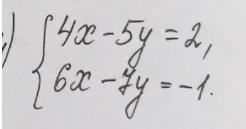 ) { 4x - 5y = 2,
6x - 7y = -1.